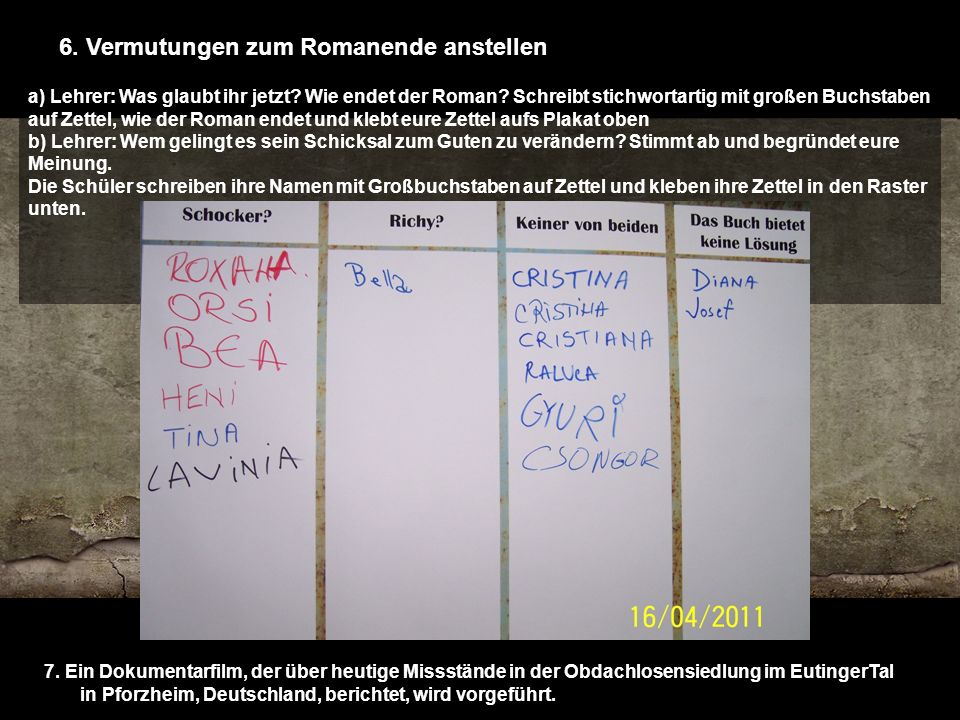 6. Vermutungen zum Romanende anstellen
a) Lehrer: Was glaubt ihr jetzt? Wie endet der Roman? Schreibt stichwortartig mit großen Buchstaben
auf Zettel, wie der Roman endet und klebt eure Zettel aufs Plakat oben
b) Lehrer: Wem gelingt es sein Schicksal zum Guten zu verändern? Stimmt ab und begründet eure
Meinung.
Die Schüler schreiben ihre Namen mit Großbuchstaben auf Zettel und kleben ihre Zettel in den Raster
unten.
Schocker?
ROXANA.
ORSI
BEA
HENI
TINA
LAVINIA
Richy?
Bella
Keiner von beiden
CRISTINA
CRISTINA
CRISTIANA
RALUCA
GYURI
CSONGOR
Das Buch bietet
keine Lösung
DIANA
Josef
16/04/2011
7. Ein Dokumentarfilm, der über heutige Missstände in der Obdachlosensiedlung im EutingerTal
in Pforzheim, Deutschland, berichtet, wird vorgeführt.